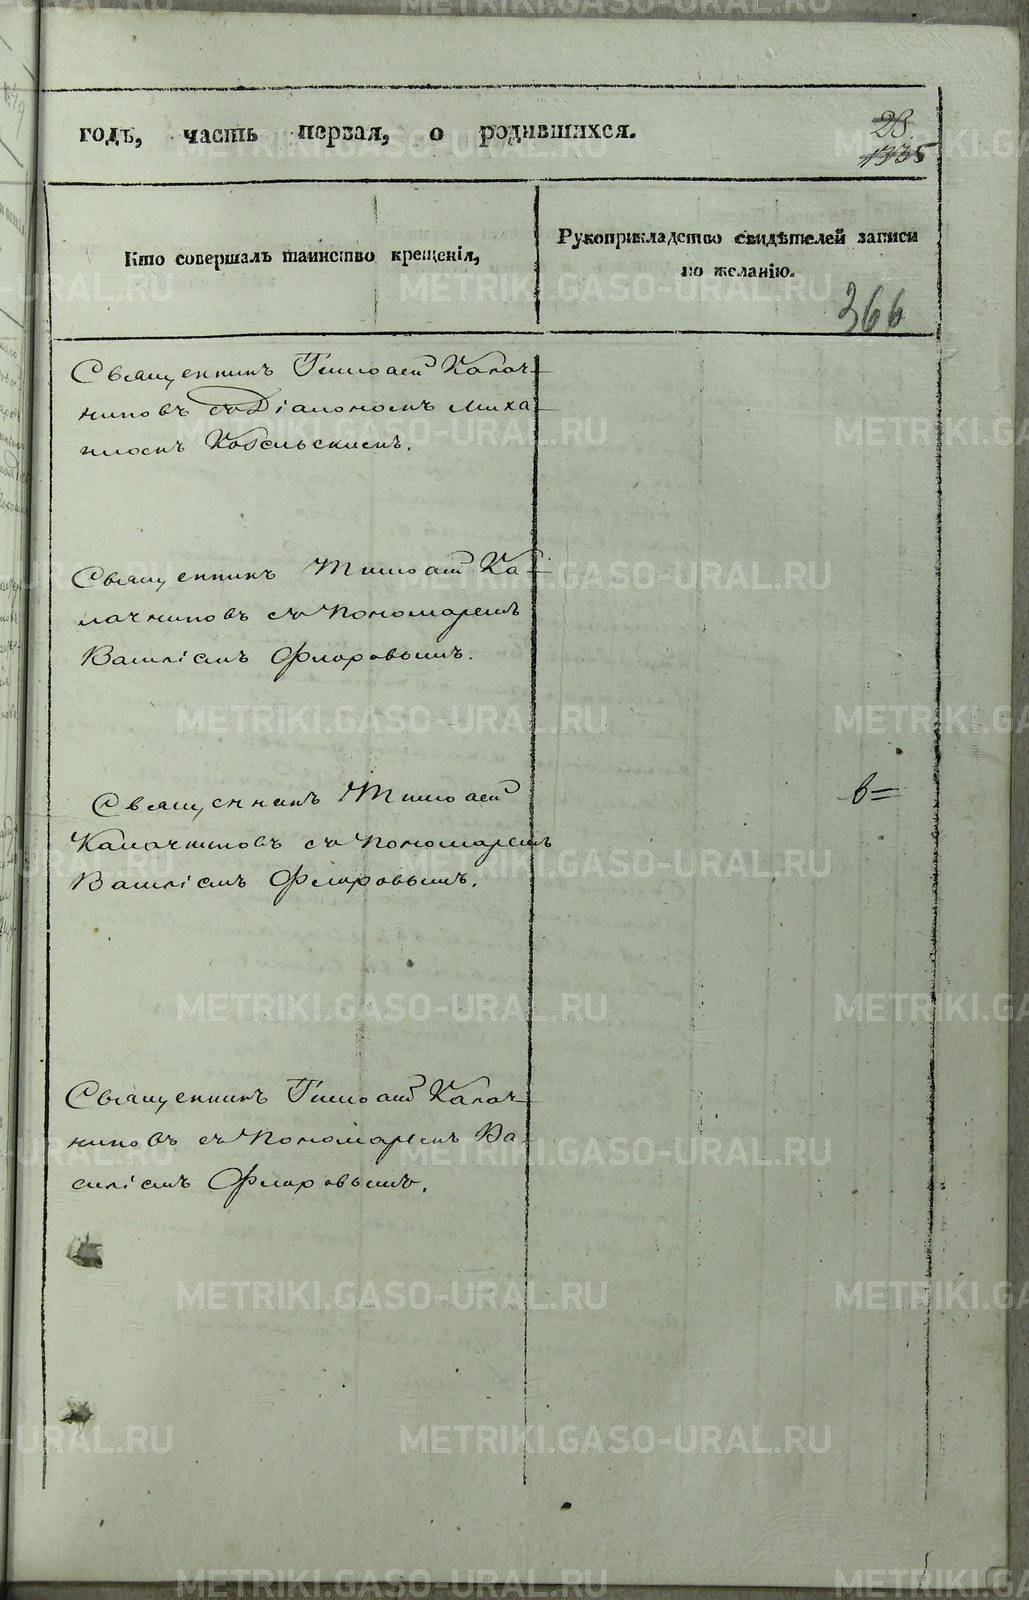 годъ, часть первая, о родившихся.
28.
1335
Кто совершалъ таинство крещенія,
Рукоприкладство свидѣтелей записи
по желанію.
366
Священникъ Тимоѳей Калач-
никовъ съ Діакономъ Миха-
иломъ Кобельскимъ.
Священникъ Тимоѳей Ка-
лачниковъ съ Пономаремъ
Василіемъ Флоровымъ.
Священникъ Тимоѳей
Калачниковъ съ Пономаремъ
Василіемъ Флоровымъ.
в=
Священникъ Тимоѳей Калач-
никовъ съ Пономаремъ Ва-
силіемъ Флоровымъ.
METRIKI.GASO-URAL.RU